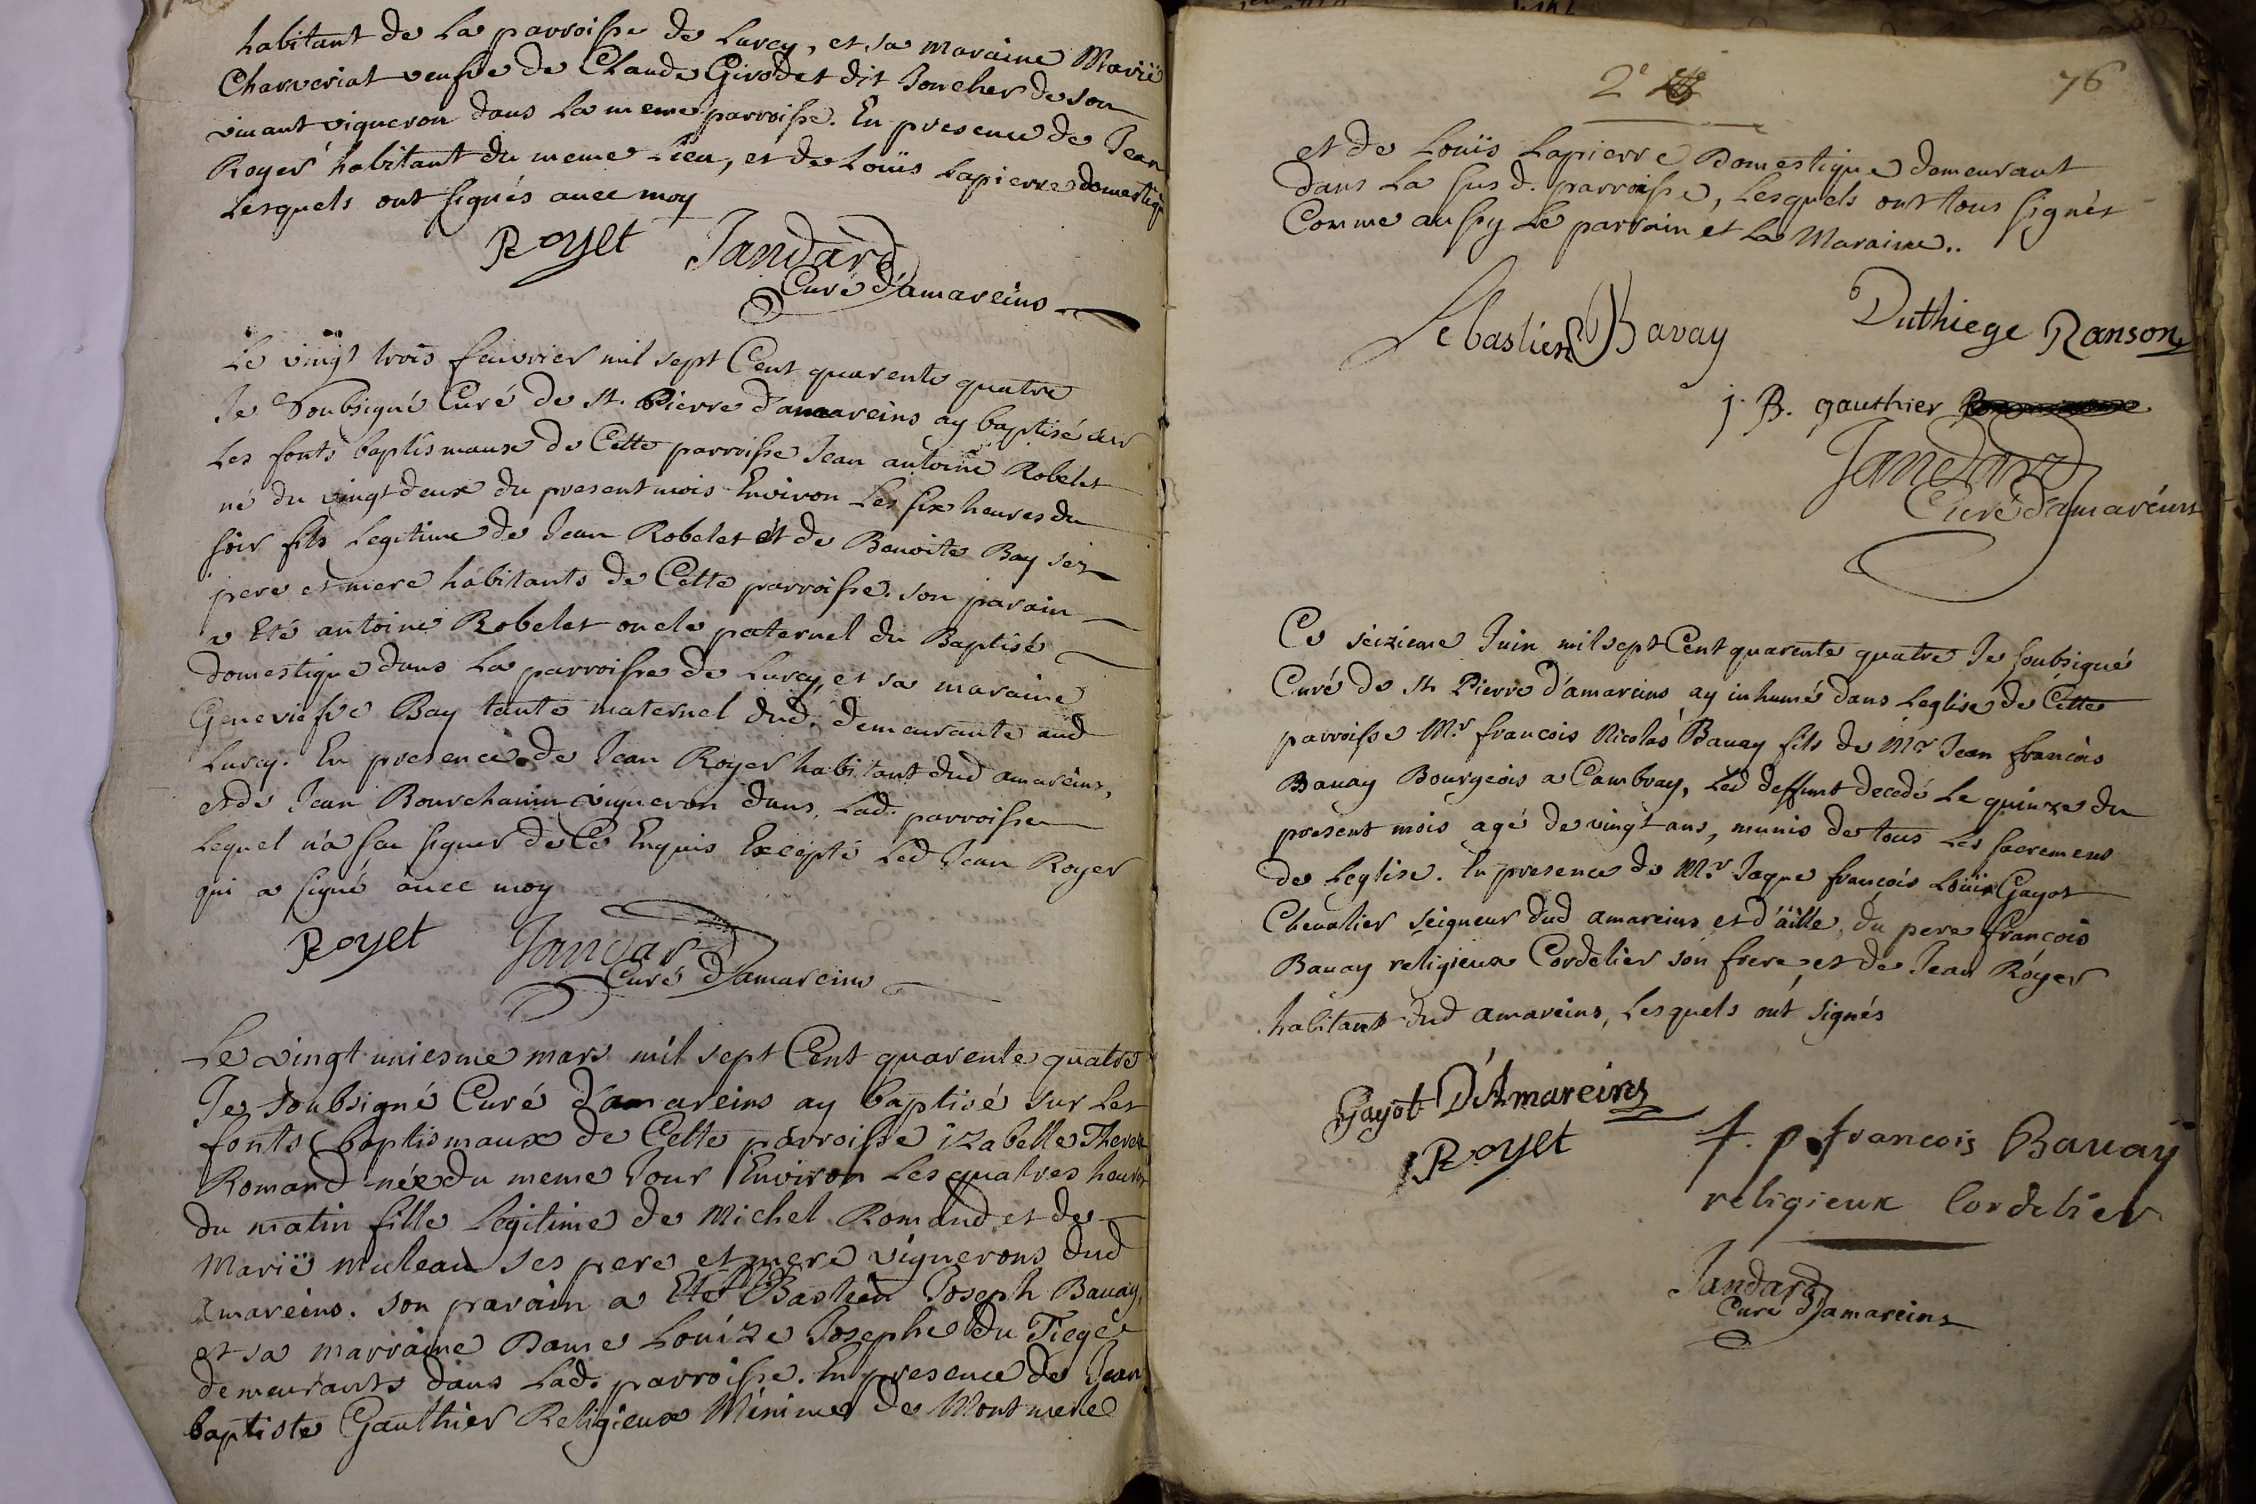 habitant de La parroisse de Lurcy, et sa maraine Marië
Charveriat veufve de Claude Girodet dit Joucher de son
vivant vigneron dans La meme parroisse. En presence de Jean
Royer habitant du meme Lieu, et de Loüis Lapierre domestiq
Lesquels ont signés avec moy
Royet Jandard
Curé d'amareins
Le vingt trois feuvrier mil sept Cent quarente quatre
Je Soubsigné Curé de St. Pierre d'amareins ay baptisé sur
Les fonts baptismaux de Cette parroisse Jean antoine Robelet
né du vingt deux du present mois Environ Les six heures du
soir fils Legitime de Jean Robelet et de Benoite Bay ses
pere et mere habitants de Cette parroisse. son parain
a Eté antoine Robelet oncle paternel du Baptisé
domestique dans La parroisse de Lurcy, et sa maraine
Geneviefve Bay tante maternel dud. demeurante aud
Lurcy. En presence de Jean Royer habitant dud amareins,
et de Jean Bourchanin vigneron dans Lad. parroisse
Lequel n'a sçu signer de Ce Enquis Excepté Led Jean Royer
qui a signé avec moy
Royet Jandard
Curé d'amareins
Le vingt uniesme mars mil sept Cent quarente quatre
Je soubsigné Curé d'amareins ay baptisé sur Les
fonts baptismaux de Cette parroisse izabelle Therese
Romand née du meme Jour Environ Les quatres heures
du matin fille Legitime de Michel Romand et de
Marië muleau ses pere et mere vignerons dud
amareins. son pravain a Eté Bastien Joseph Bavay,
et sa marraine Dame Louize Josephe du Tiege
demeurants dans Lad. parroisse. En presence de Jean
baptiste Gauthier Religieux Minime de Montmerle
2e
76
et de Loüis Lapierre Domestique demeurant
dans La susd. parroisse, Lesquels ont tous signés
Comme aussy Le parrain et La Maraine..
Sebastien Bavay Duthiege Ranson
j. B. gauthier
Jandard
Curé d'amareins
Ce seizieme Juin mil sept Cent quarente quatre Je soubsigné
Curé de St Pierre d'amareins ay inhumé dans Leglise de Cette
parroisse Mr. francois Nicolas Bavay fils de Mr Jean francois
Bavay Bourgeois a Cambray, Led deffunt decedé Le quinze du
present mois agé de vingt ans, munis de tous Les sacremens
de Leglise. En presence de Mr. Jaque françois Loüis Gayot
Chevalier seigneur dud amareins et d'äille, du pere francois
Bavay religieux Cordelier son frere, et de Jean Royer
habitant dud amareins, Lesquels ont signés
Gayot D'Amareins
Royet
f. p. francois Bavaÿ
religieux Cordelier
Jandard
Curé d'amareins